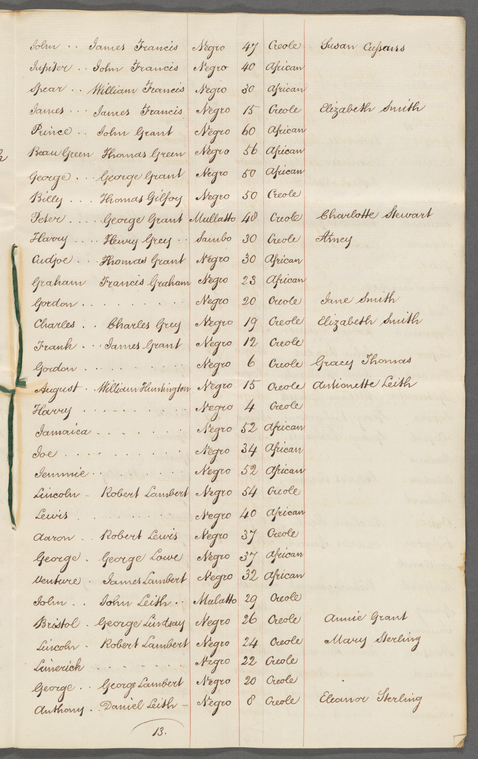 John .. James Francis Negro 47 Creole Susan Cussans
Jupiter .. John Francis Negro 40 African
Spear .. William Francis Negro 30 African
James .. James Francis Negro 15 Creole Elizabeth Smith
Prince .. John Grant Negro 60 African
Beau Green Thomas Green Negro 56 African
George .. George Grant Negro 50 African
Billy .. Thomas Gilfoy Negro 50 Creole
Peter .... George Grant Mullatto 48 Creole Charlotte Stewart
Harry .... Henry Grey .. Sambo 30 Creole Amey
Cudjoe .. Thomas Grant Negro 30 African
Graham Francis Graham Negro 23 African
Gordon .......... Negro 20 Creole Jane Smith
Charles .. Charles Grey Negro 19 Creole Elizabeth Smith
Frank ... James Grant Negro 12 Creole
Gordon .......... Negro 6 Creole Gracey Thomas
August . William Hunnington Negro 15 Creole Antionette Leith
Harry .......... Negro 4 Creole
Jamaica ........ Negro 52 African
Joe .......... Negro 34 African
Jemmie ........ Negro 52 African
Lincoln - Robert Lambert Negro 54 Creole
Lewis .......... Negro 40 African
Aaron .. Robert Lewis Negro 37 Creole
George . George Lowe Negro 37 African
Venture . James Lambert Negro 32 African
John .. John Leith .. Mulatto 29 Creole
Bristol . George Lindsay Negro 26 Creole Annie Grant
Lincoln . Robert Lambert Negro 24 Creole Mary Sterling
Limerick ........ Negro 22 Creole
George .. George Lambert Negro 20 Creole
Anthony . Daniel Leith - Negro 8 Creole Eleanor Sterling
13.